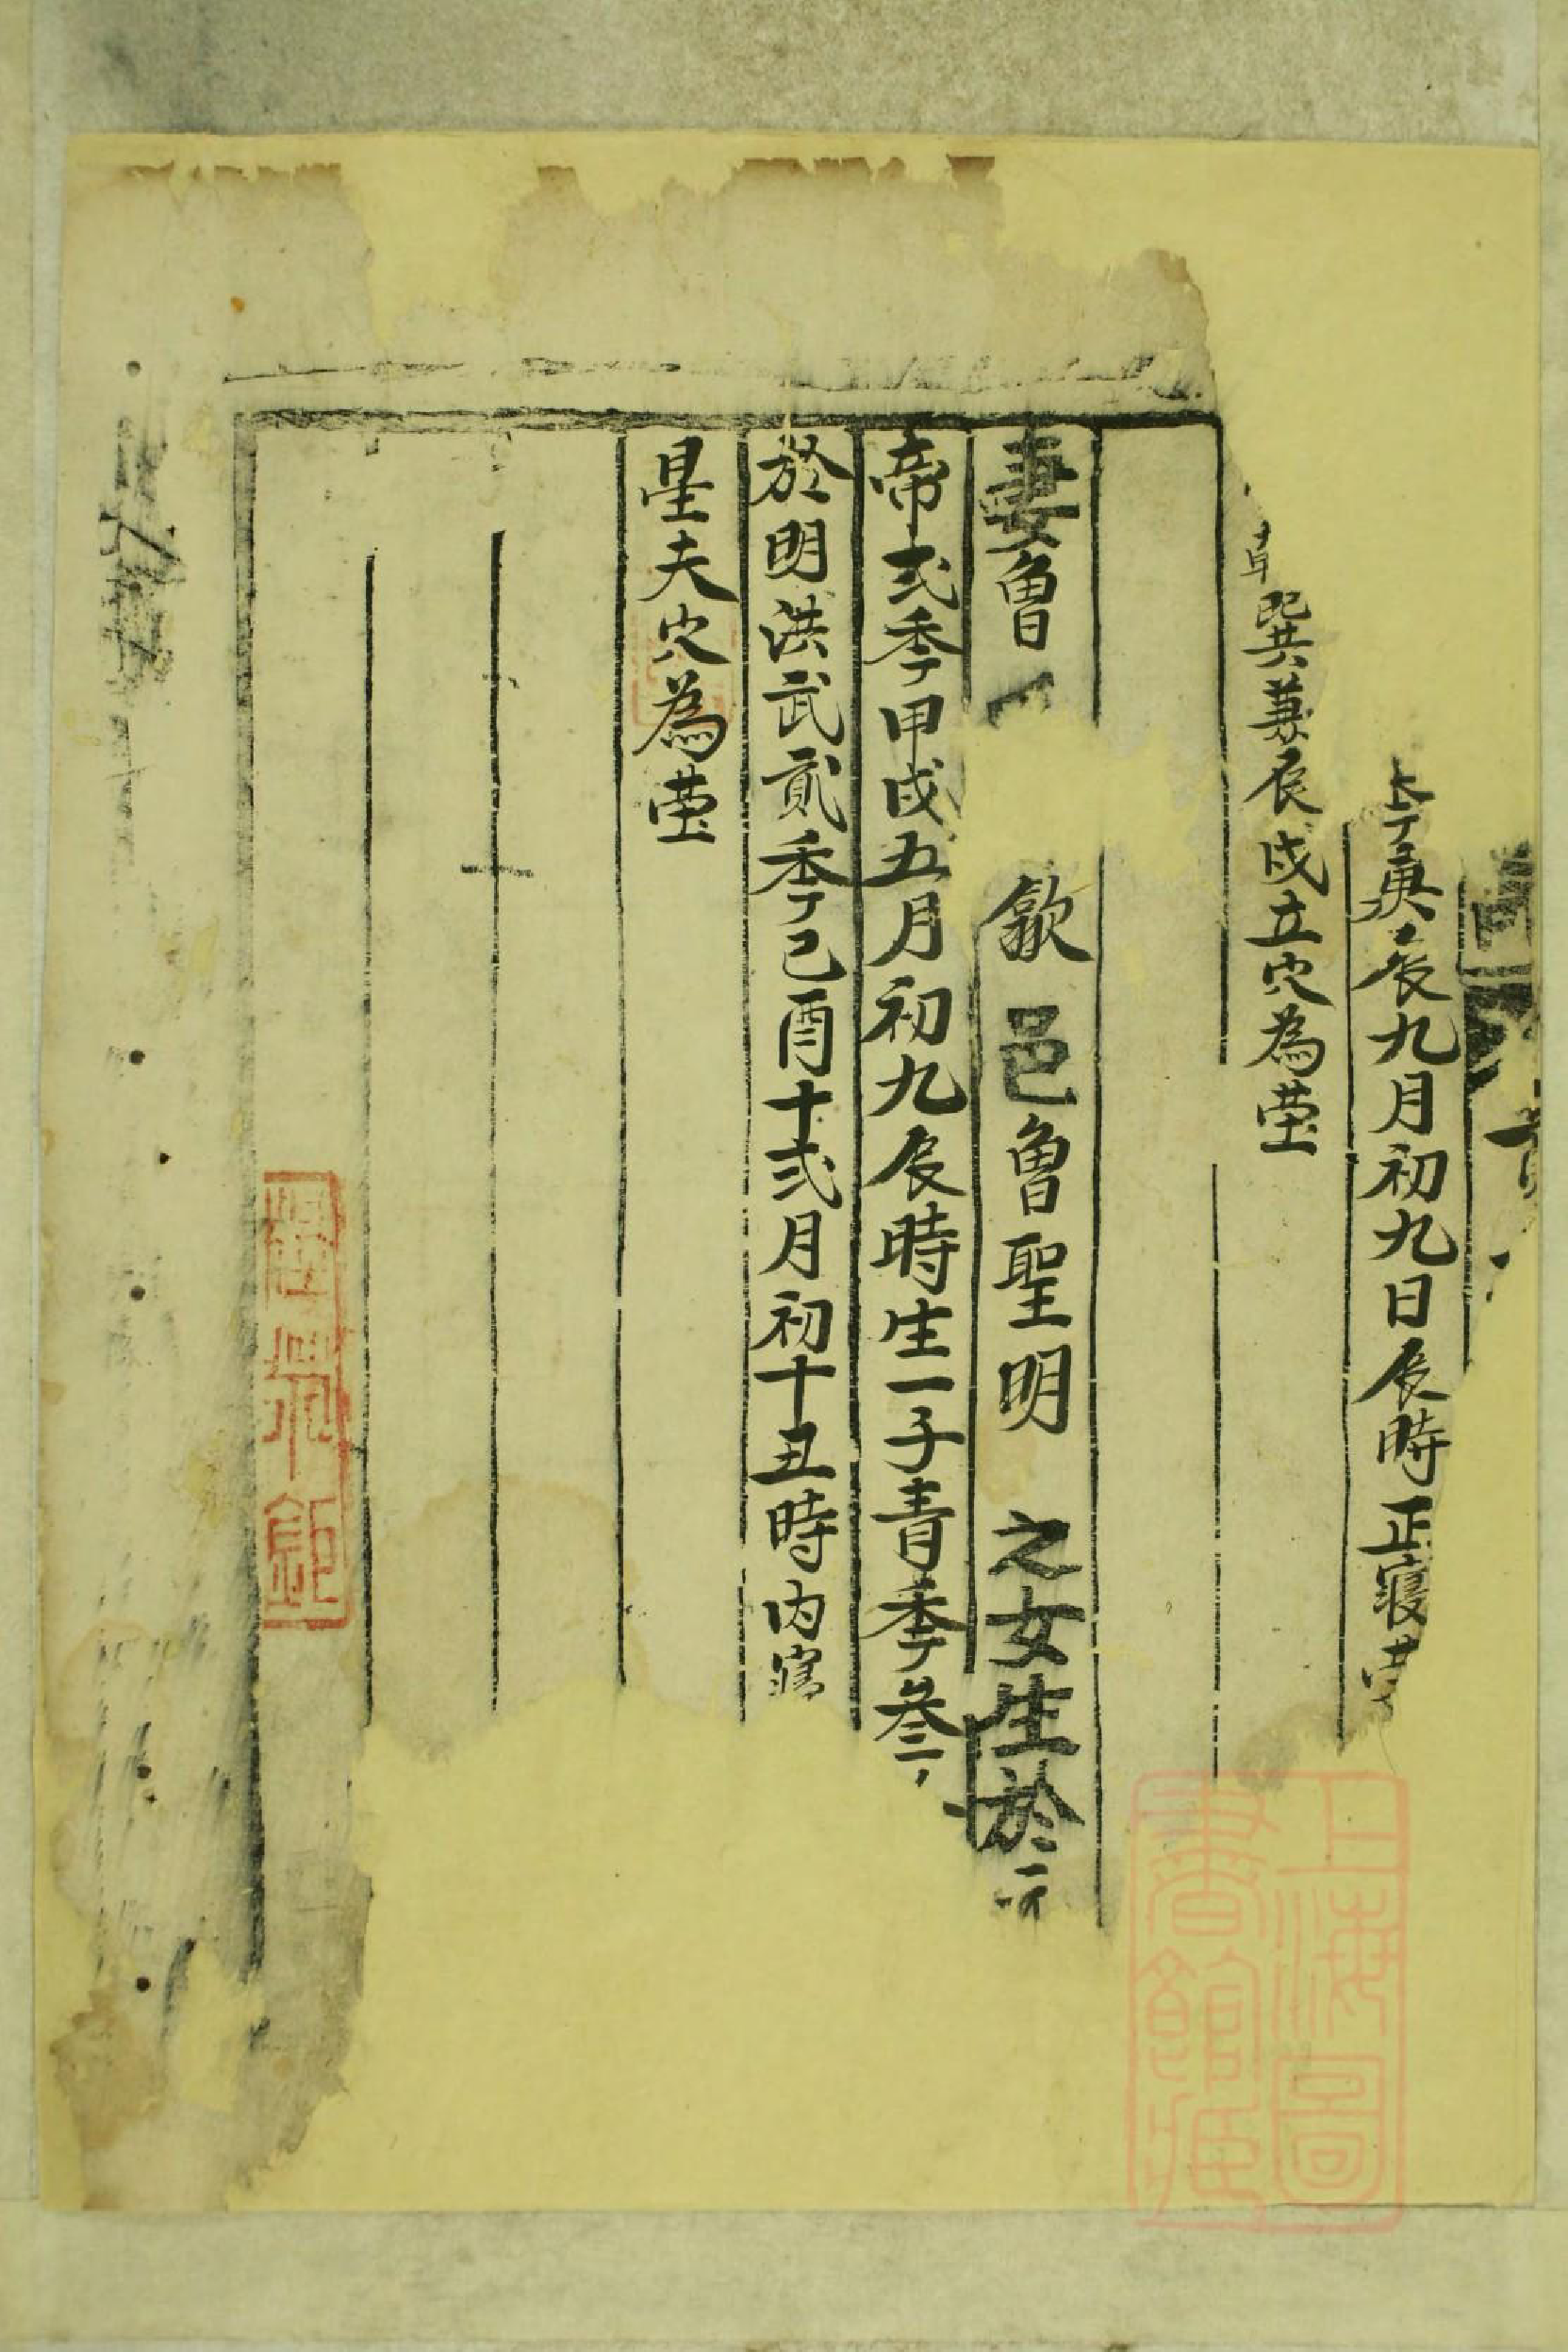 季庚辰九月初九日辰時正寢
巽兼辰戌立穴為塋
妻魯 歙邑魯聖明之女生於元
帝弍季甲戌五月初九辰時生一子青季叁
於明洪武貳季己酉十弍月初十丑時内寢
星夫穴為塋
上海圖書館藏